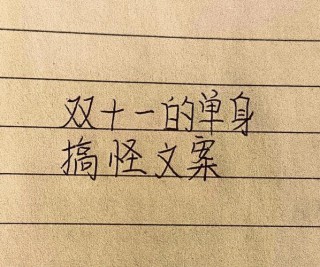 双十一的单身
搞怪文案